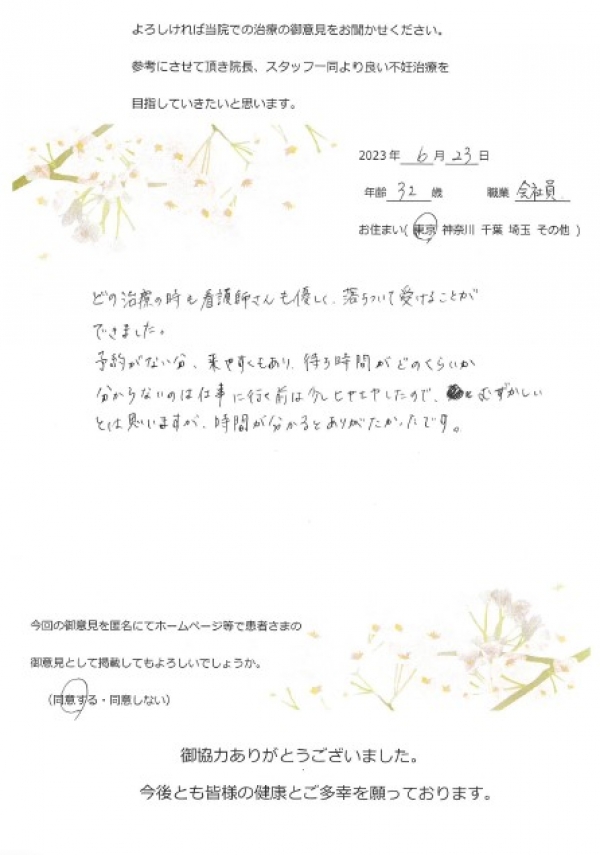 よろしければ当院での治療の御意見をお聞かせください。
参考にさせて頂き院長、スタッフ一同より良い不妊治療を
目指していきたいと思います。
2023年 6 月 23 日
年齢 32 歳 職業 会社員
お住まい( 東京 神奈川 千葉 埼玉 その他 )
どの治療の時も看護師さんも優しく、落ちついて受けることが
できました。
予約がない分、来やすくもあり、待ち時間がどのくらいか
分からないのは仕事に行く前は少しヒヤヒヤしたので、むずかしい
とは思いますが、時間が分かるとありがたかったです。
今回の御意見を匿名にてホームページ等で患者さまの
御意見として掲載してもよろしいでしょうか。
（同意する・同意しない）
御協力ありがとうございました。
今後とも皆様の健康とご多幸を願っております。